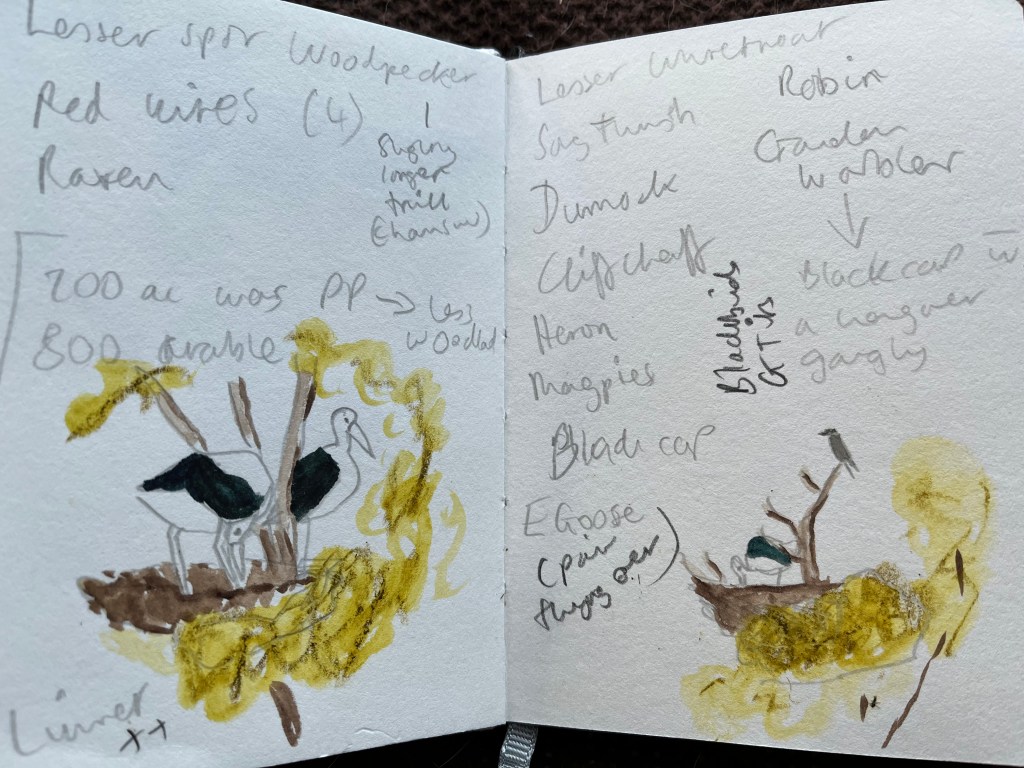 Lesser spot Woodpecker
Red kites (4)
1
Raven
singing
longer
trill
200 ac was PP → less
woodland
800 arable
Linnet
++
Lesser Whitethroat
Robin
Song thrush
Garden
Warbler
↓
Dunnock
Chiffchaff
Blackcap w
a hangover
gargling
Blackbirds
GTits
Heron
Magpies
Blackcap
E Goose
(pair
flying over)